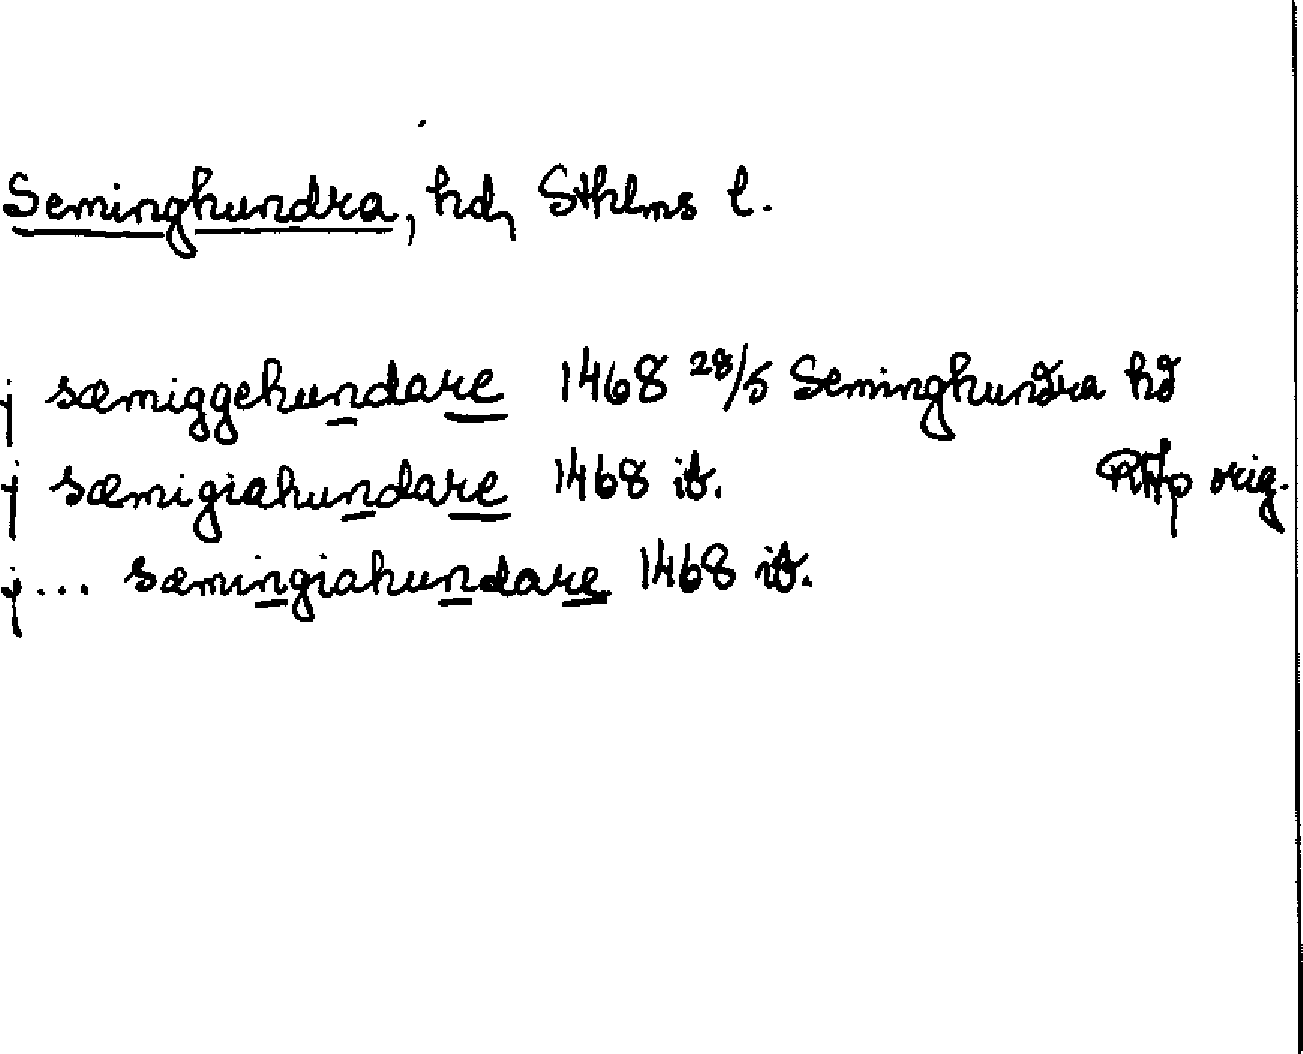 Seminghundra, hd, Sthlms l.
j sæmiggehundare 1468 28/5 Seminghundra hd
j sæmigiahundare 1468 ib. RAp orig.
j... sæmingiahundare 1468 ib.